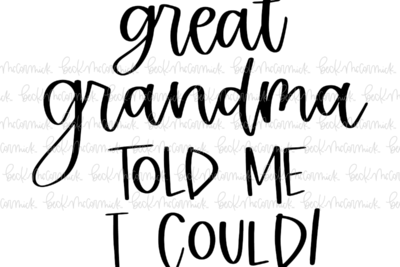 great
grandma
TOLD ME
I COULD!